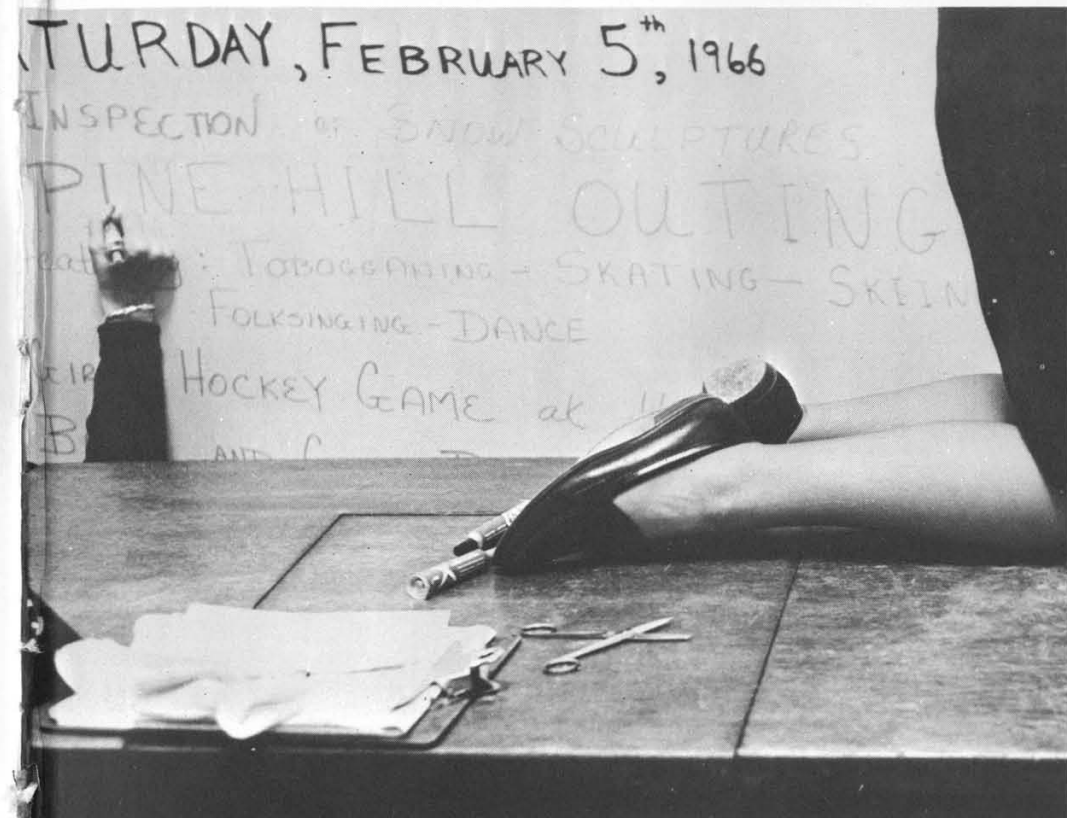 ATURDAY, FEBRUARY 5th, 1966
INSPECTION OF SNOW SCULPTURES
PINE HILL OUTING
: TOBOGGANING - SKATING - SKEIN
FOLKSINGING - DANCE
HOCKEY GAME at
AND